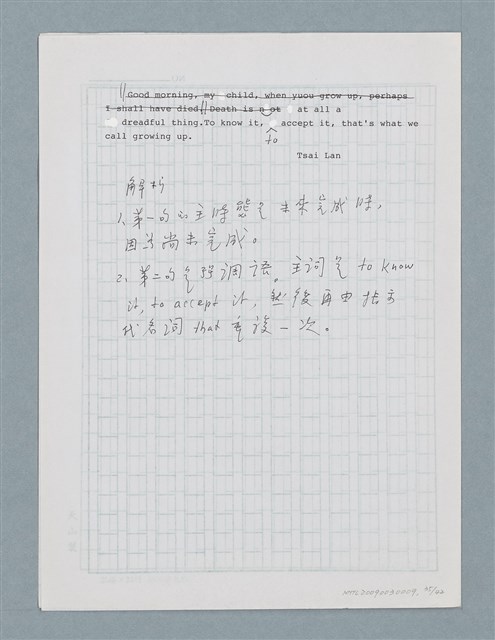 Good morning, my child, when yuou grow up, perhaps
I shall have died. Death is not at all a
dreadful thing.To know it, to accept it, that's what we
call growing up.
Tsai Lan
解析
1、第一句的主時態是未來完成時,
因為尚未完成。
2、第二句是強調語。主詞是 to know
it, to accept it, 然後再由指示
代名詞 that 重複一次。